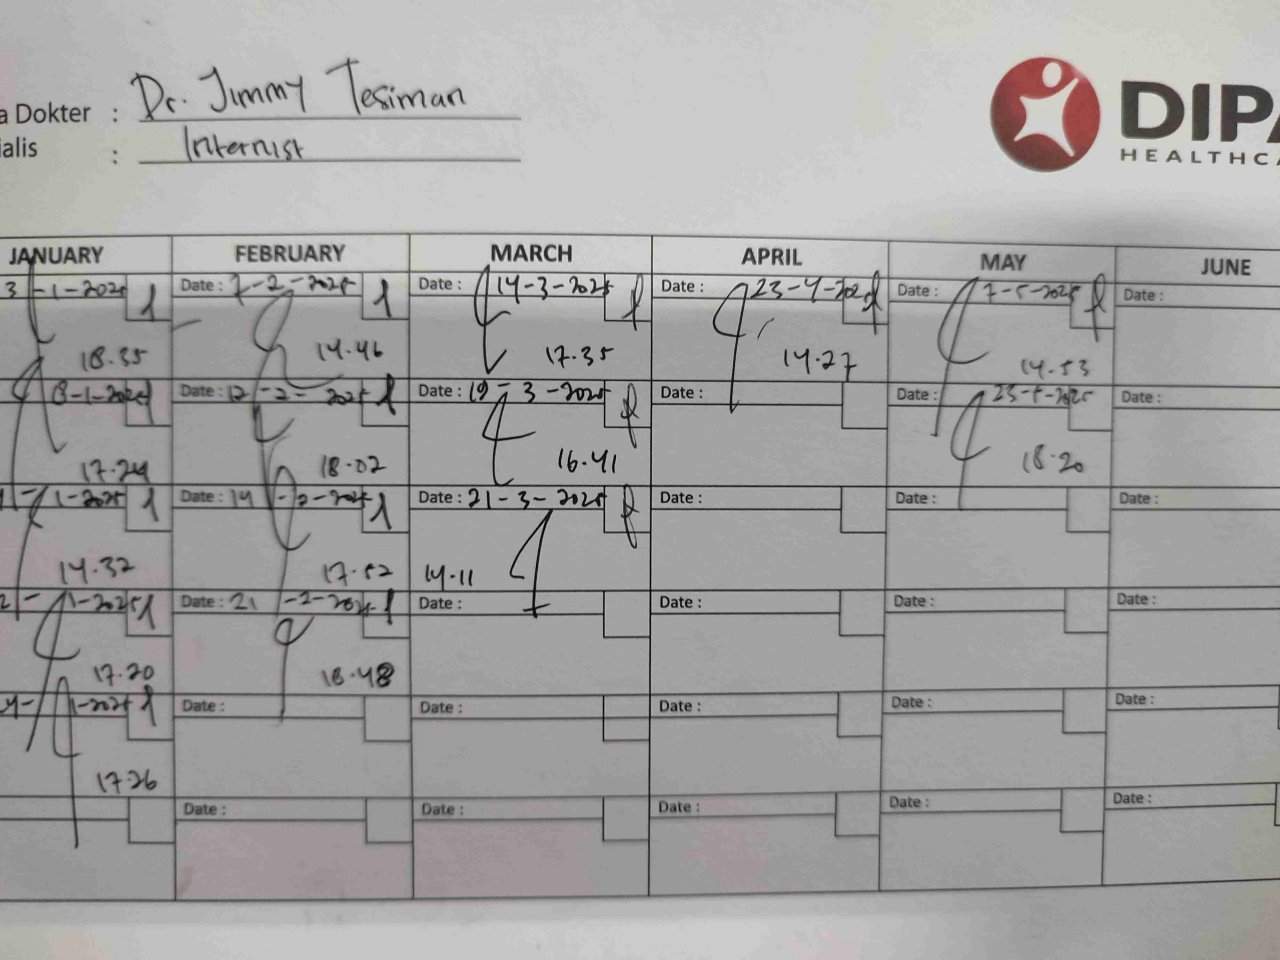 a Dokter : Dr. Jimmy Tesiman
ialis : Internist
DIPA
HEALTHCA
JANUARY FEBRUARY MARCH APRIL MAY JUNE
3-1-2025 Date: 7-2-2025 Date: 14-3-2025 Date: 23-4-2025 Date: 7-5-2025 Date:
18.35 14.46 17.35 14.27 14.53
8-1-2025 Date: 12-2-2025 Date: 19-3-2025 Date: Date: 23-5-2025 Date:
17.24 18.02 16.41 18.20
1-2025 Date: 14-2-2025 Date: 21-3-2025 Date: Date: Date:
14.32 17.52 14.11
1-2025 Date: 21-2-2025 Date: Date: Date: Date:
17.20 18.48
1-2025 Date: Date: Date: Date: Date:
17.26
Date: Date: Date: Date: Date: